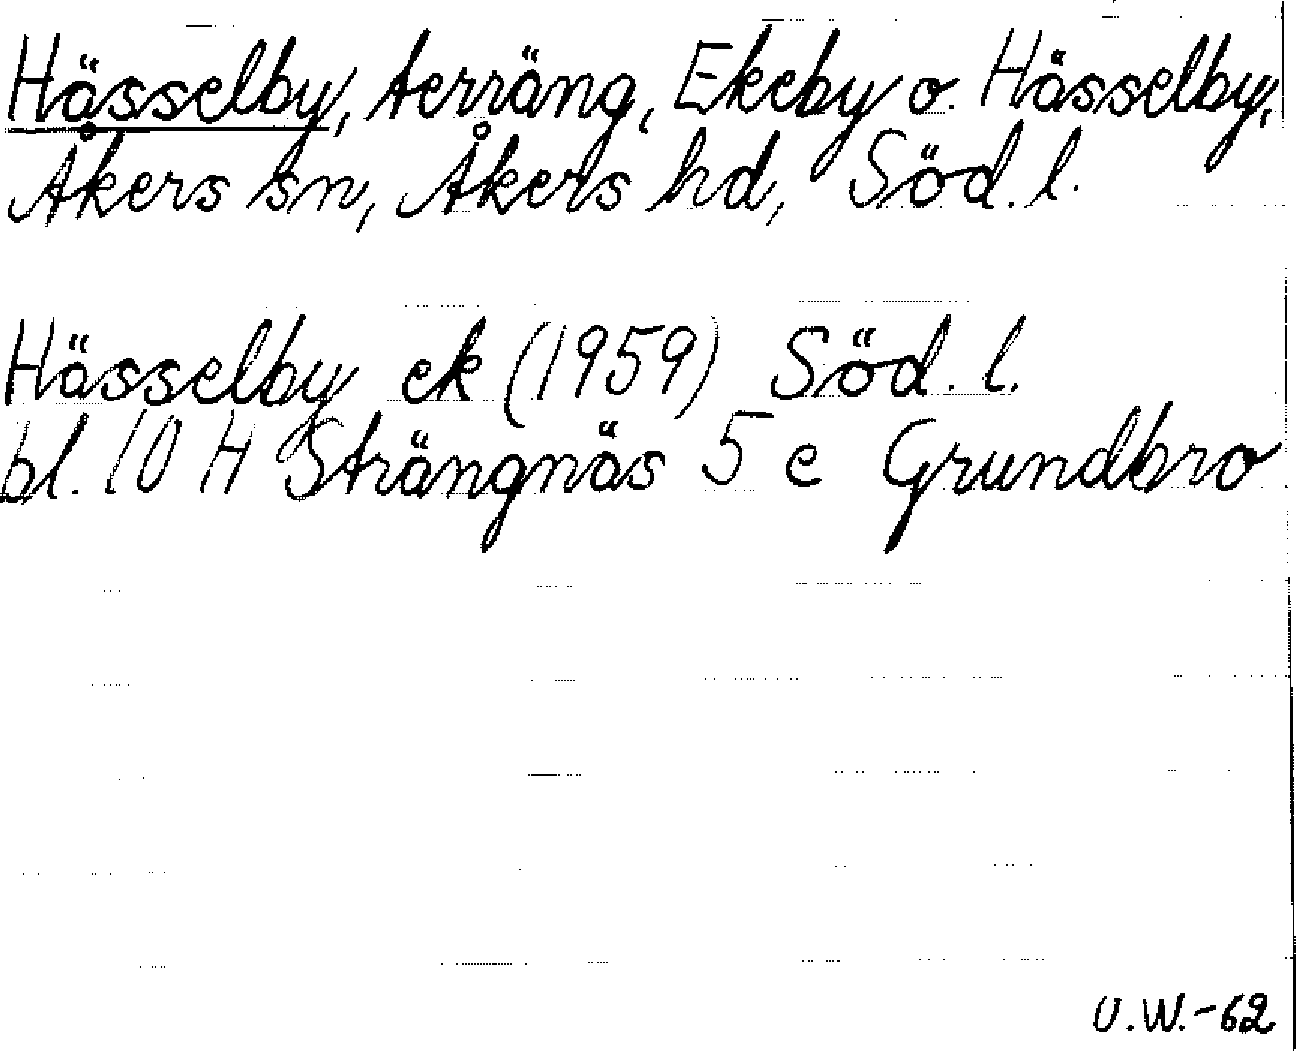 Hässelby, terräng, Ekeby o. Hässelby,
Åkers sn, Åkers hd, Söd. l.
Hässelby ek (1959) Söd. l.
bl. 10 H Strängnäs 5 e Grundbro
U.W.-62